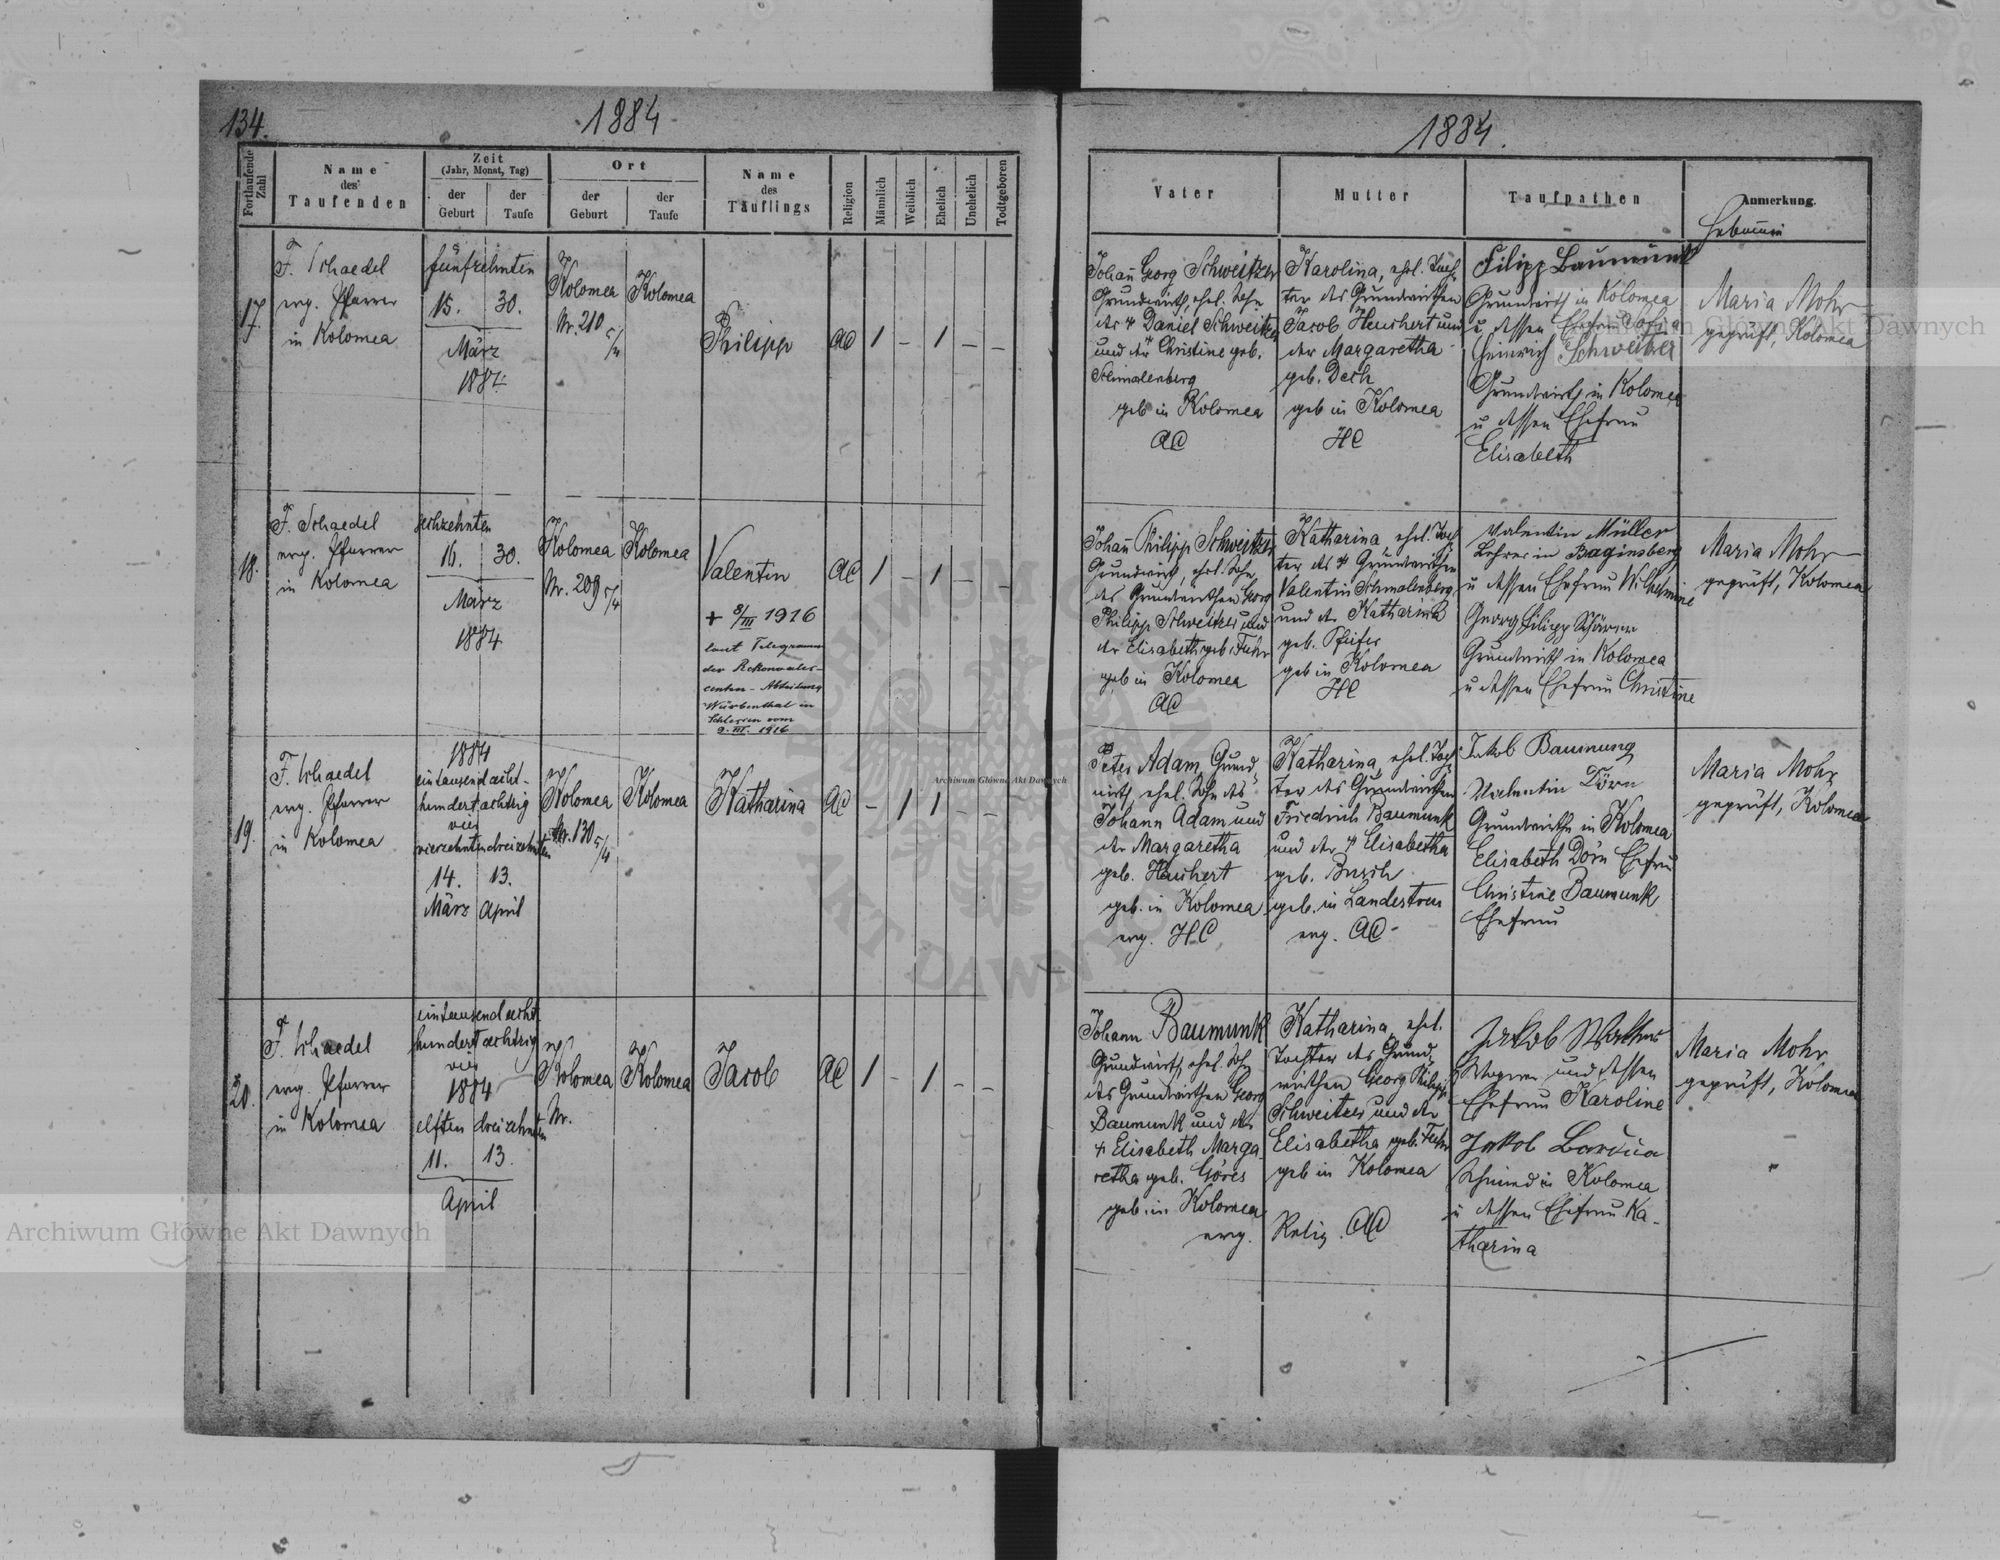 134.
1884
1884.
Fortlaufende Zahl
Name
des
Taufenden
Zeit
(Jahr, Monat, Tag)
der Geburt
der Taufe
Ort
der Geburt
der Taufe
Name
des
Täuflings
Religion
Männlich
Weiblich
Ehelich
Unehelich
Todtgeboren
Vater
Mutter
Taufpathen
Anmerkung.
17.
F. Schaedel
evg. Pfarrer
in Kolomea
fünfzehnten
15. 30.
März
1884.
Kolomea
Nr. 210
Kolomea
Philipp
AC 1 – 1 – –
Johañ Georg Schweitzer
Grundwirth, ehel. Sohn
des † Daniel Schweitzer
und der † Christine geb.
Schmalenberg
geb in Kolomea
AC
Karolina, ehel. Toch-
ter des Grundwirthen
Jacob Heuchert und
der Margaretha
geb. Desh
geb in Kolomea
HC
Filipp Baumunk
Grundwirth in Kolomea
u. dessen Ehefrau
Heinrich Schweitzer
Grundwirth in Kolomea
u dessen Ehefrau
Elisabeth
Maria Mohr
geprüft, Kolomea
18.
F. Schaedel
evg. Pfarrer
in Kolomea
sechzehnten
16. 30.
März
1884
Kolomea
Nr. 209 5/4
Kolomea
Valentin
+ 8/III 1916
laut Telegramm
der Rekonvales-
centen-Abteilung
Würbenthal in
Schlesien vom
9. III. 1916
AC 1 – 1 – –
Johañ Philipp Schweitzer
Grundwirth, ehel. Sohn
des Grundwirthen Georg
Philipp Schweitzer und
der Elisabeth geb. Fuhr
geb in Kolomea
AC
Katharina ehel. Toch-
ter des † Grundwirthen
Valentin Schmalenberg
und der Katharina
geb. Pfeifer
geb in Kolomea
HC
Valentin Müller
Lehrer in Baginsberg
u dessen Ehefrau Wilhelmine
Georg Filipp
Grundwirth in Kolomea
u dessen Ehefrau Christine
Maria Mohr
geprüft, Kolomea
19.
F. Schaedel
evg. Pfarrer
in Kolomea
1884
eintausend acht-
hundert achtzig
vier
vierzehnten dreizehnten
14. 13.
März April
Kolomea
Nr. 130 5/4
Kolomea
Katharina
AC – 1 1 – –
Peter Adam, Grund-
wirth, ehel. Sohn des
Johann Adam und
der Margaretha
geb. Heuchert
geb. in Kolomea
evg. HC
Katharina, ehel. Toch-
ter des Grundwirthen
Friedrich Baumunk
und der † Elisabetha
geb. Busch
geb. in Landestreu
evg. AC
Jakob Baumung
Valentin Dörn
Grundwirthe in Kolomea
Elisabeth Dörn Ehefrau
Christine Baumunk
Ehefrau
Maria Mohr
geprüft, Kolomea
20.
F. Schaedel
evg. Pfarrer
in Kolomea
eintausend acht
hundert achtzig
vier
1884
elften dreizehnten
11. 13.
April
Kolomea
Nr.
Kolomea
Jacob
AC 1 – 1 – –
Johann Baumunk
Grundwirth, ehel. Sohn
des Grundwirthen Georg
Baumunk und der
† Elisabeth Marga-
retha geb. Göres
geb. in Kolomea
evg.
Katharina, ehel.
Tochter des Grund-
wirthen Georg Philipp
Schweitzer und der
Elisabetha geb. Fuhr
geb in Kolomea
Relig. AC
Jakob Walther
Wagner und dessen
Ehefrau Karoline
Jakob
Schmied in Kolomea
u dessen Ehefrau Ka-
tharina
Maria Mohr
geprüft, Kolomea
Archiwum Główne Akt Dawnych
Archiwum Główne Akt Dawnych
Archiwum Główne Akt Dawnych
ARCHIWUM GŁÓWNE AKT DAWNYCH